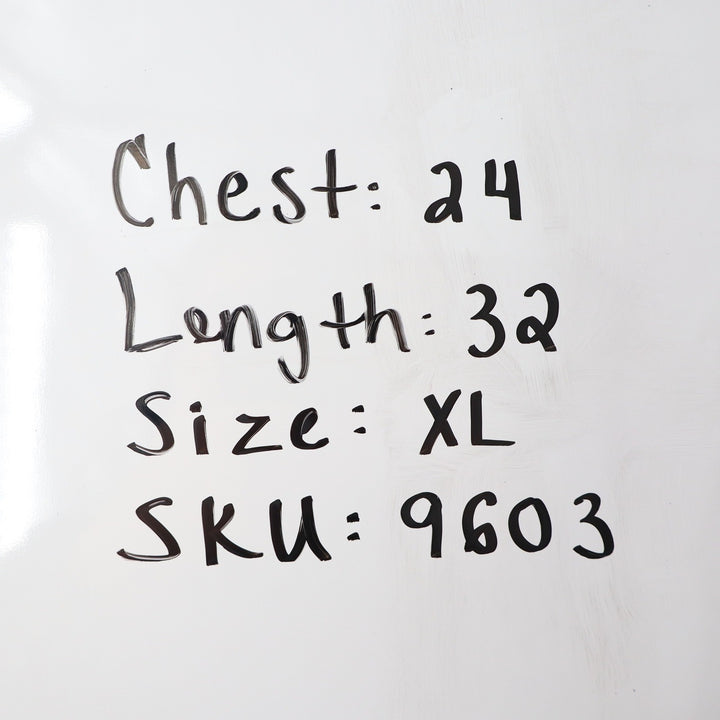 Chest: 24
Length: 32
Size: XL
SKU: 9603